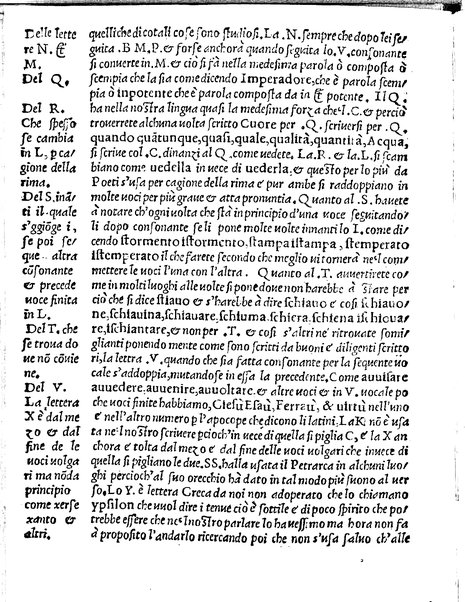 Delle lette
re N. &
M.
Del Q.
Del R.
Che spesso
se cambia
in L, p ca-
gione della
rima.
Del S. inã-
ti il quale
s'ggiõge i,
se poi se-
que altra
cõsonante
& precede
uoce finita
in L.
Del T. che
se troua do
ue nõ cõuie
ne.
Del V.
La lettera
X è dal me
zo & dal
fine de le
uoci uolga
ri mãdãda
principio
come xerse
xanto &
altri.
quelli che di cotali cose sono studiosi. La .N. sempre che dopo lei se/
guita .B M.P. & forse anchora quando seguita lo .V. consonante
si conuerte in .M. & ciò si fà nella medesima parola ò composta ò
scempia che la sia come dicendo Imperadore, che è parola scem/
pia ò inpotente che è parola composta da in & potente. Il Q.
ha nella nostra lingua quasi la medesima forza che'l .C. & perciò
trouerrete alchuna uolta scritto Cuore per .Q. scriuersi per .Q.
quando quãtunque, quasi, quale, qualità, quantità, Acqua,
si scriue col .C. dinanzi al Q. come uedete. La .R. & la .L. si scam
biano come uedella in uece di uederla, & questo per lo più da
Poeti s'usa per cagione della rima é pur ambe si raddoppiano in
molte uoci per più graue & atta pronuntia. Quanto al .S. hauete
à notare ch'ogni uolta che stà in principio d'una uoce seguitando/
li dopo consonante se li pone molte uolte innanti lo I. come di/
cendo stormento istormento, stampa istampa, stemperato
istemperato il che farete secondo che meglio ui tornerà ne'l com/
mettere le uoci l'una con l'altra. Quanto al .T. auuertirete co/
me in molti luoghi alle uolte si pone doue non harebbe à stare per
ciò che si dice stiauo & s'harebbe à dire schiauo é cosi ischiauo/
ne, schiauina, schiauare, schiuma, schiera, schiena ischioua/
re, ischiantare, & non per .T. & cosi s'altri ne ritrouate somi/
glianti ponendo mente come sono scritti da buoni é diligenti scritto/
ri, la lettra .V. quando che sia fatta consonante per la sequente uo
cale s'addoppia, mutandose in essa la precedente. Come auuisare
auuedere, auuenire, auuoltare. & altre uoci & in V. uocale po
che uoci finite habbiamo, Giesù Esaù, Ferraù, & uirtù nell'uno
é nell'altro numero p l'apocope che dicono li latini, La K nõ è usa
ta ne'l nostro scriuere pcioch'in uece di questa si piglia C. é la X an
chora é tolta dal mezo é dal fine delle uoci uolgari che inuece di
quella si pigliono le due .SS. halla usata il Petrarca in alchuni luo/
ghi percioch'al suo orecchio hà dato in tal modo più suono al uer
so. Lo Y. è lettera Greca da noi non adoperato che lo chiamano
ypsilon che uuol dire i tenue ciò è sottile é di poco spirito che po/
trebbe essere che ne'l nostro parlare lo hauessimo ma hora non fa
à proposito l'andarlo ricercando poi che non s'usa saluo ch'alle